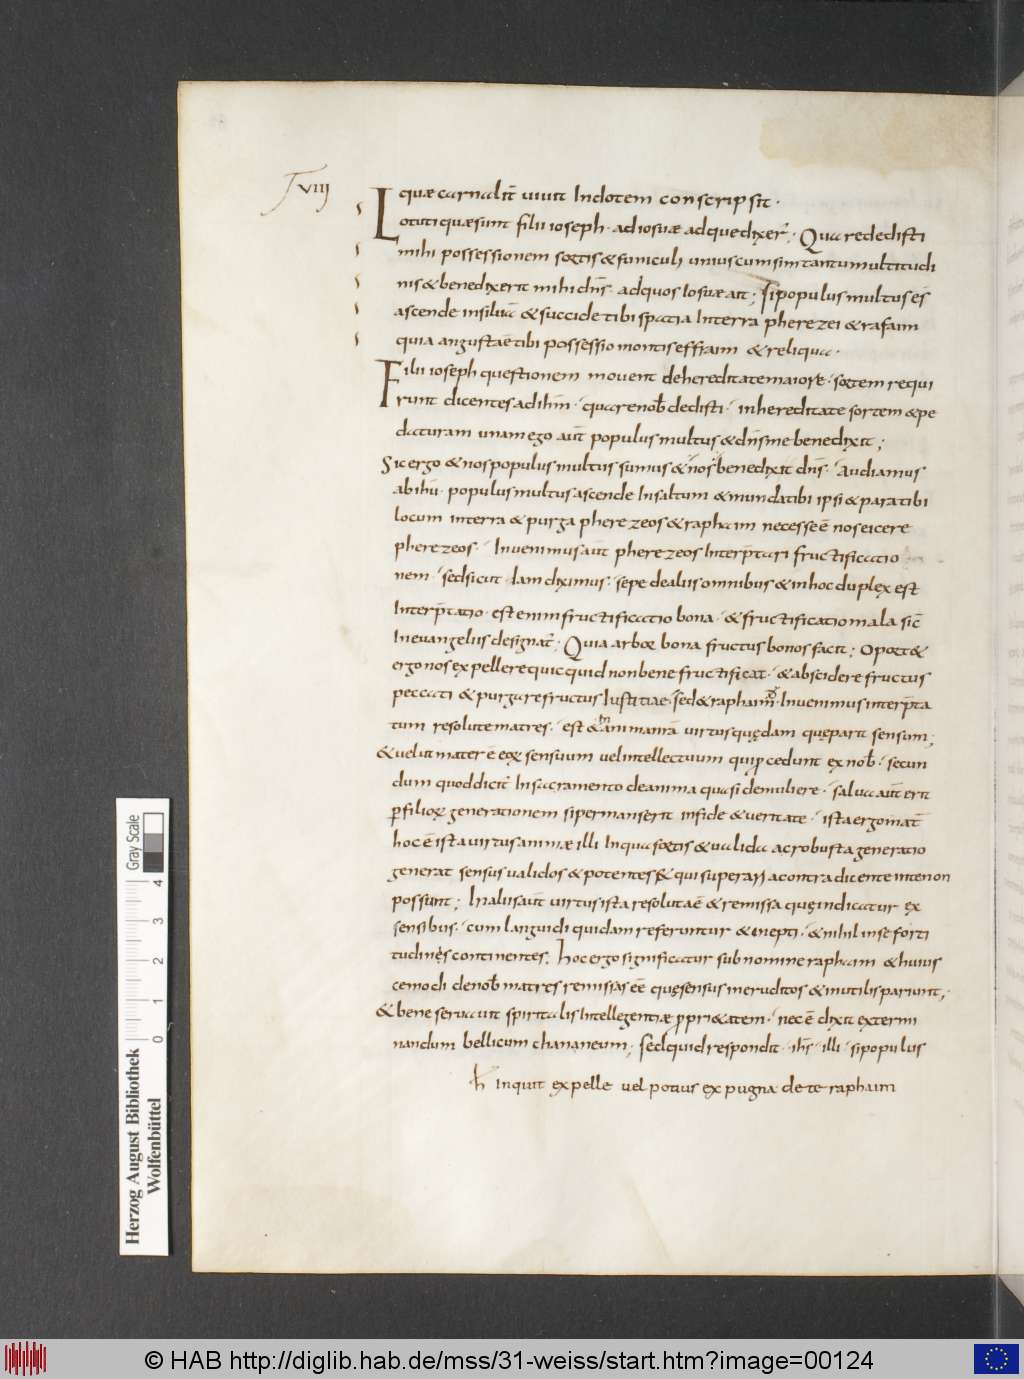 T viij
quæ carnalit̄ uiuit Indotem conscripsit·
Locuti quæ sunt filii ioseph· adiosuæ adque dixer̄;· Quare dedisti
mihi possessionem sortis & funiculi unius cum sim tantu multitudi
nis & benedixerit mihi dn̄s· adquos Iosuæ ait; Si populus multus es
ascende insiluā & succide tibi spatia Interra pherezei & rafaim
quia angusta ē tibi possessio montis effraim & reliqua·
Filii ioseph questionem mouent de hereditate maiore· sortem requi
runt dicentes ad ih̄m· quare nob̄ dedisti· in hereditate sortem & pe
daturam unam ego aūt populus multus & dn̄s me benedixit;
Sic ergo & nos populus multus sumus & nos benedixit dn̄s· Audiamus
ab ih̄u· populus multus ascende Insaltum & munda tibi ipsi & para tibi
locum interra & purga pherezeos & raphaim necesse ē nos eicere
pherezeos· Inuenimus aūt pherezeos Interp̄tari fructificatio
nem· sed sicut Iam diximus· sepe de aliis omnibus & in hoc duplex est
Interp̄tatio· est enim fructificatio bona· & fructificatio mala sic̄
In euangeliis designat̄; Quia arbor bona fructus bonos facit; Oport&
ergo nos expellere quicquid non bene fructificat· & abscidere fructus
peccati & purgare fructus Iustitiae· sed & raphaim Inuenimus interp̄ta
tum resolute matres· est &ani manrā uirtus quędam quę parit sensum;
& uelut mater ē eoꝝ sensuum uel intellectuum qui ꝓcedunt ex nob̄· secun
dum quod dicit̄ In sacramento de anima quasi de muliere· salua aūt erit
ꝑ filioꝝ generationem si permanserit infide & ueritate· ista ergo mat̄
hoc ē ista uirtus animæ illi Inqua fortis & ualida ac robusta generatio
generat sensus ualidos & potentes & qui superari a contradicente inte non
possunt; In aliis aūt uirtus ista resoluta ē & remissa quę indicatur ex
sensibus· cum languidi quidam referuntur & inepti· & nihil in se forti
tudinęs continentes; hoc ergo significatur sub nomine raphaim & huius
cemodi de nob̄ matres remissas eē quę sensus ineruditos & inutilis pariunt;
& bene seruauit spiritalis Intellegentiæ ꝓpri&atem· nec ē dixit extermi
nandum bellicum chananeum; Sed quid respondit· ih̄s· illi· si populus
h̄ inquit expelle uel potius expugna de te raphaim
Gray Scale
0 1 2 3 4
Herzog August Bibliothek
Wolfenbüttel
© HAB http://diglib.hab.de/mss/31-weiss/start.htm?image=00124